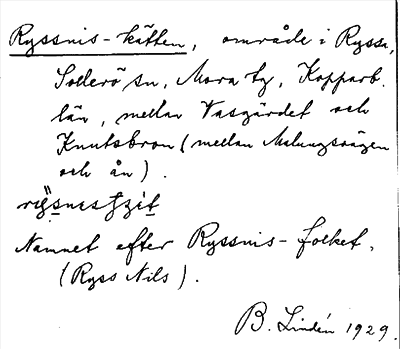 Ryssnis-kätten, område i Ryssa,
Sollerö sn, Mora tg, Kopparb.
län, mellan Vasgärdet och
Knutsbron (mellan Malungsvägen
och ån).
Namnet efter Ryssnis-folket.
(Ryss Nils).
B. Lindén 1929.